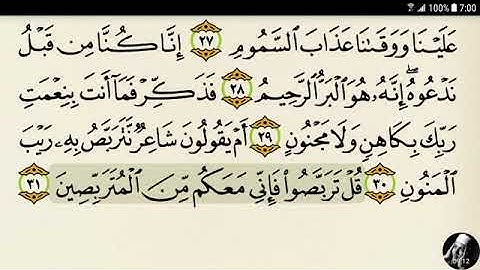 100% 7:00
عَلَيْنَا وَوَقَىٰنَا عَذَابَ ٱلسَّمُومِ ٢٧ إِنَّا كُنَّا مِن قَبْلُ
نَدْعُوهُ ۖ إِنَّهُۥ هُوَ ٱلْبَرُّ ٱلرَّحِيمُ ٢٨ فَذَكِّرْ فَمَآ أَنتَ بِنِعْمَتِ
رَبِّكَ بِكَاهِنٍ وَلَا مَجْنُونٍ ٢٩ أَمْ يَقُولُونَ شَاعِرٌ نَّتَرَبَّصُ بِهِۦ رَيْبَ
ٱلْمَنُونِ ٣٠ قُلْ تَرَبَّصُوا۟ فَإِنِّى مَعَكُم مِّنَ ٱلْمُتَرَبِّصِينَ ٣١